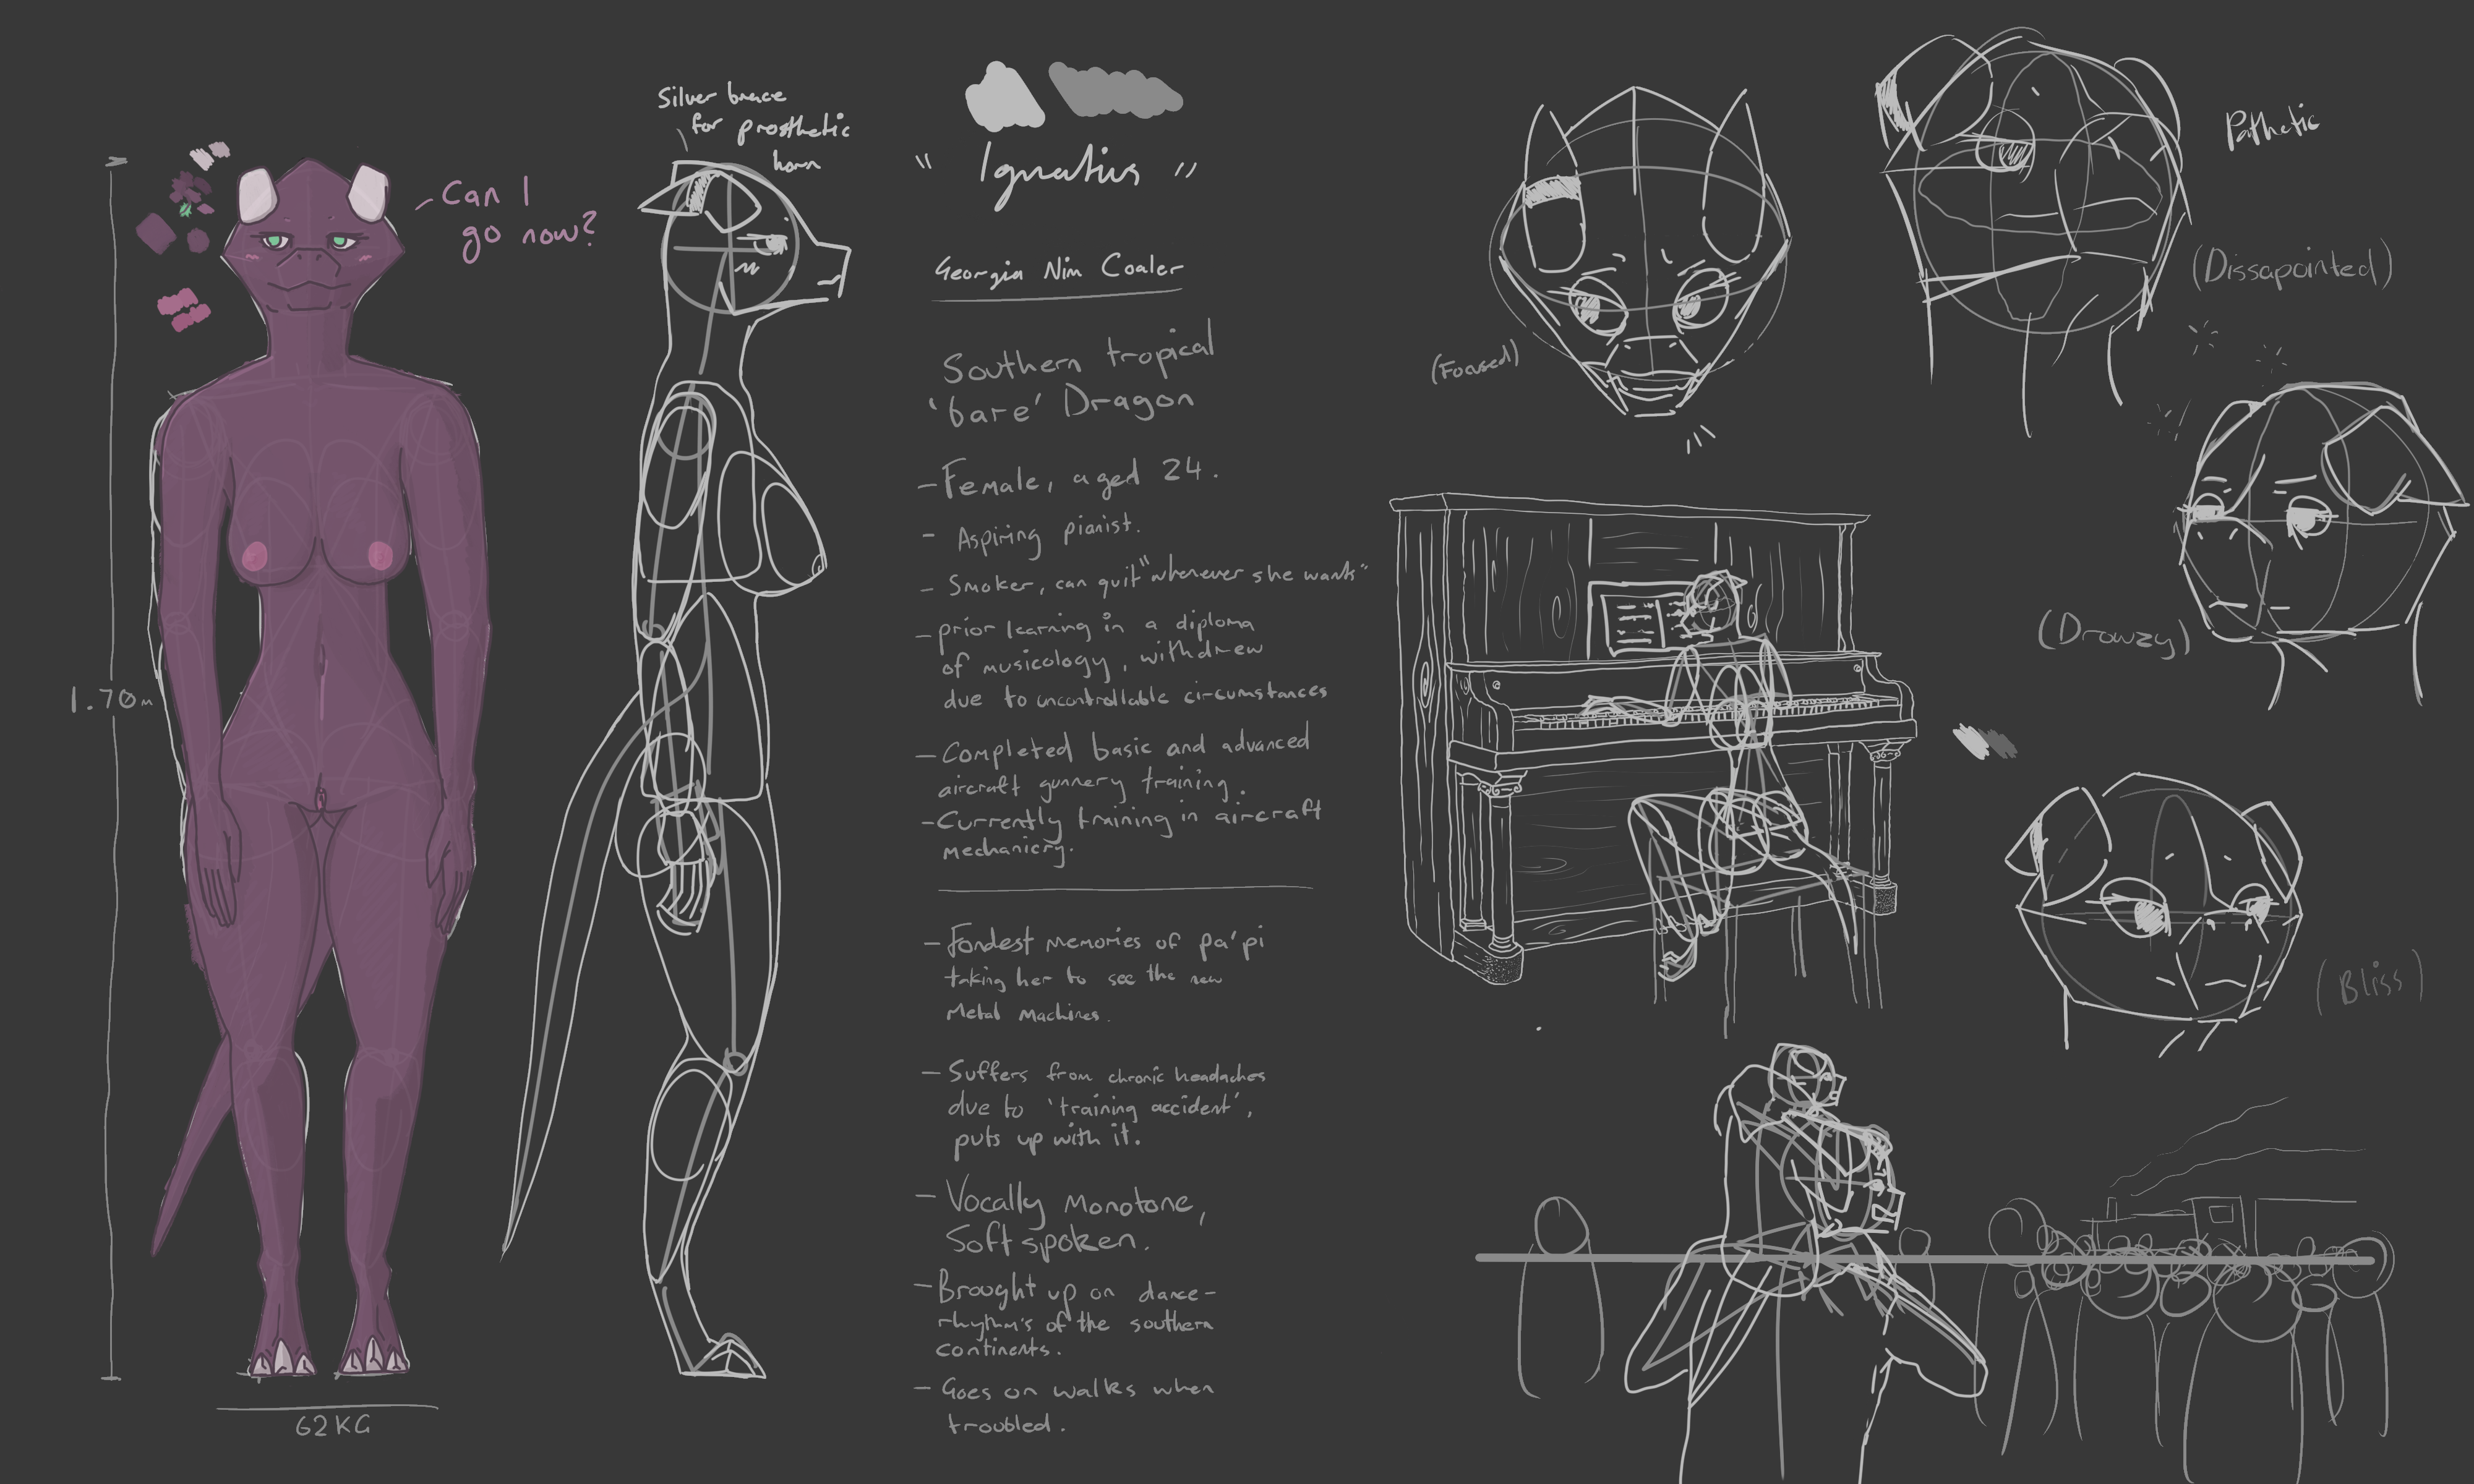 Can I
go now?
1.70m
62KG
Silver brace
for prosthetic
horn
"Ignatius"
Georgia Nim Coaler
Southern tropical
'bare' Dragon
- Female, aged 24.
- Aspiring pianist.
- Smoker, can quit "whenever she wants"
- prior learning in a diploma
of musicology, withdrew
due to uncontrollable circumstances
- Completed basic and advanced
aircraft gunnery training.
- Currently training in aircraft
mechanicry.
- Fondest memories of pa'pi
taking her to see the new
Metal Machines.
- Suffers from chronic headaches
due to 'training accident',
puts up with it.
- Vocally Monotone,
Soft spoken.
- Brought up on dance-
rhythm's of the southern
continents.
- Goes on walks when
troubled.
(Focused)
Pathetic
(Dissapointed)
(Drowzy)
(Bliss)